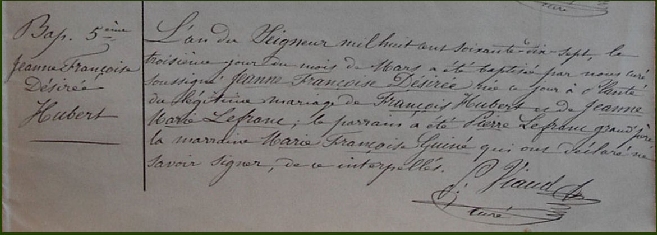 Bap. 5ème
Jeanne Françoise
Désirée
Hubert
L'an du Seigneur mil huit cent soixante-dix-sept, le
troisième jour du mois de Mars a été baptisée par nous curé
soussigné Jeanne Françoise Désirée née ce jour à
du légitime mariage de François Hubert et de Jeanne
Marie Lefranc; le parrain a été Pierre Lefranc grand père,
la marraine Marie Françoise Guiné qui ont déclaré ne
savoir signer, de ce interpellés.
Viaud
curé
curé